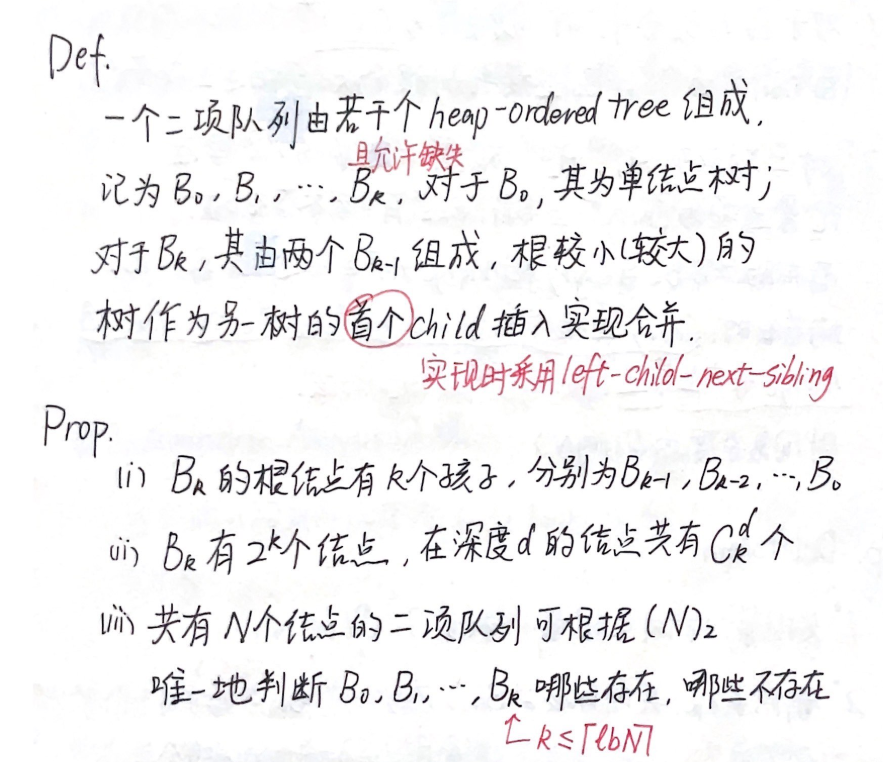 Def.
一个二项队列由若干个 heap-ordered tree 组成,
且允许缺失
记为 B₀, B₁, ⋯, Bₖ, 对于 B₀, 其为单结点树;
对于 Bₖ, 其由两个 Bₖ₋₁ 组成, 根较小(较大)的
树作为另一树的首个 child 插入实现合并.
实现时采用 left-child-next-sibling
Prop.
(i) Bₖ 的根结点有 k 个孩子, 分别为 Bₖ₋₁, Bₖ₋₂, ⋯, B₀
(ii) Bₖ 有 2ᵏ 个结点, 在深度 d 的结点共有 Cₖᵈ 个
(iii) 共有 N 个结点的二项队列可根据 (N)₂
唯一地判断 B₀, B₁, ⋯, Bₖ 哪些存在, 哪些不存在
↑ k ≤ ⌈lbN⌉